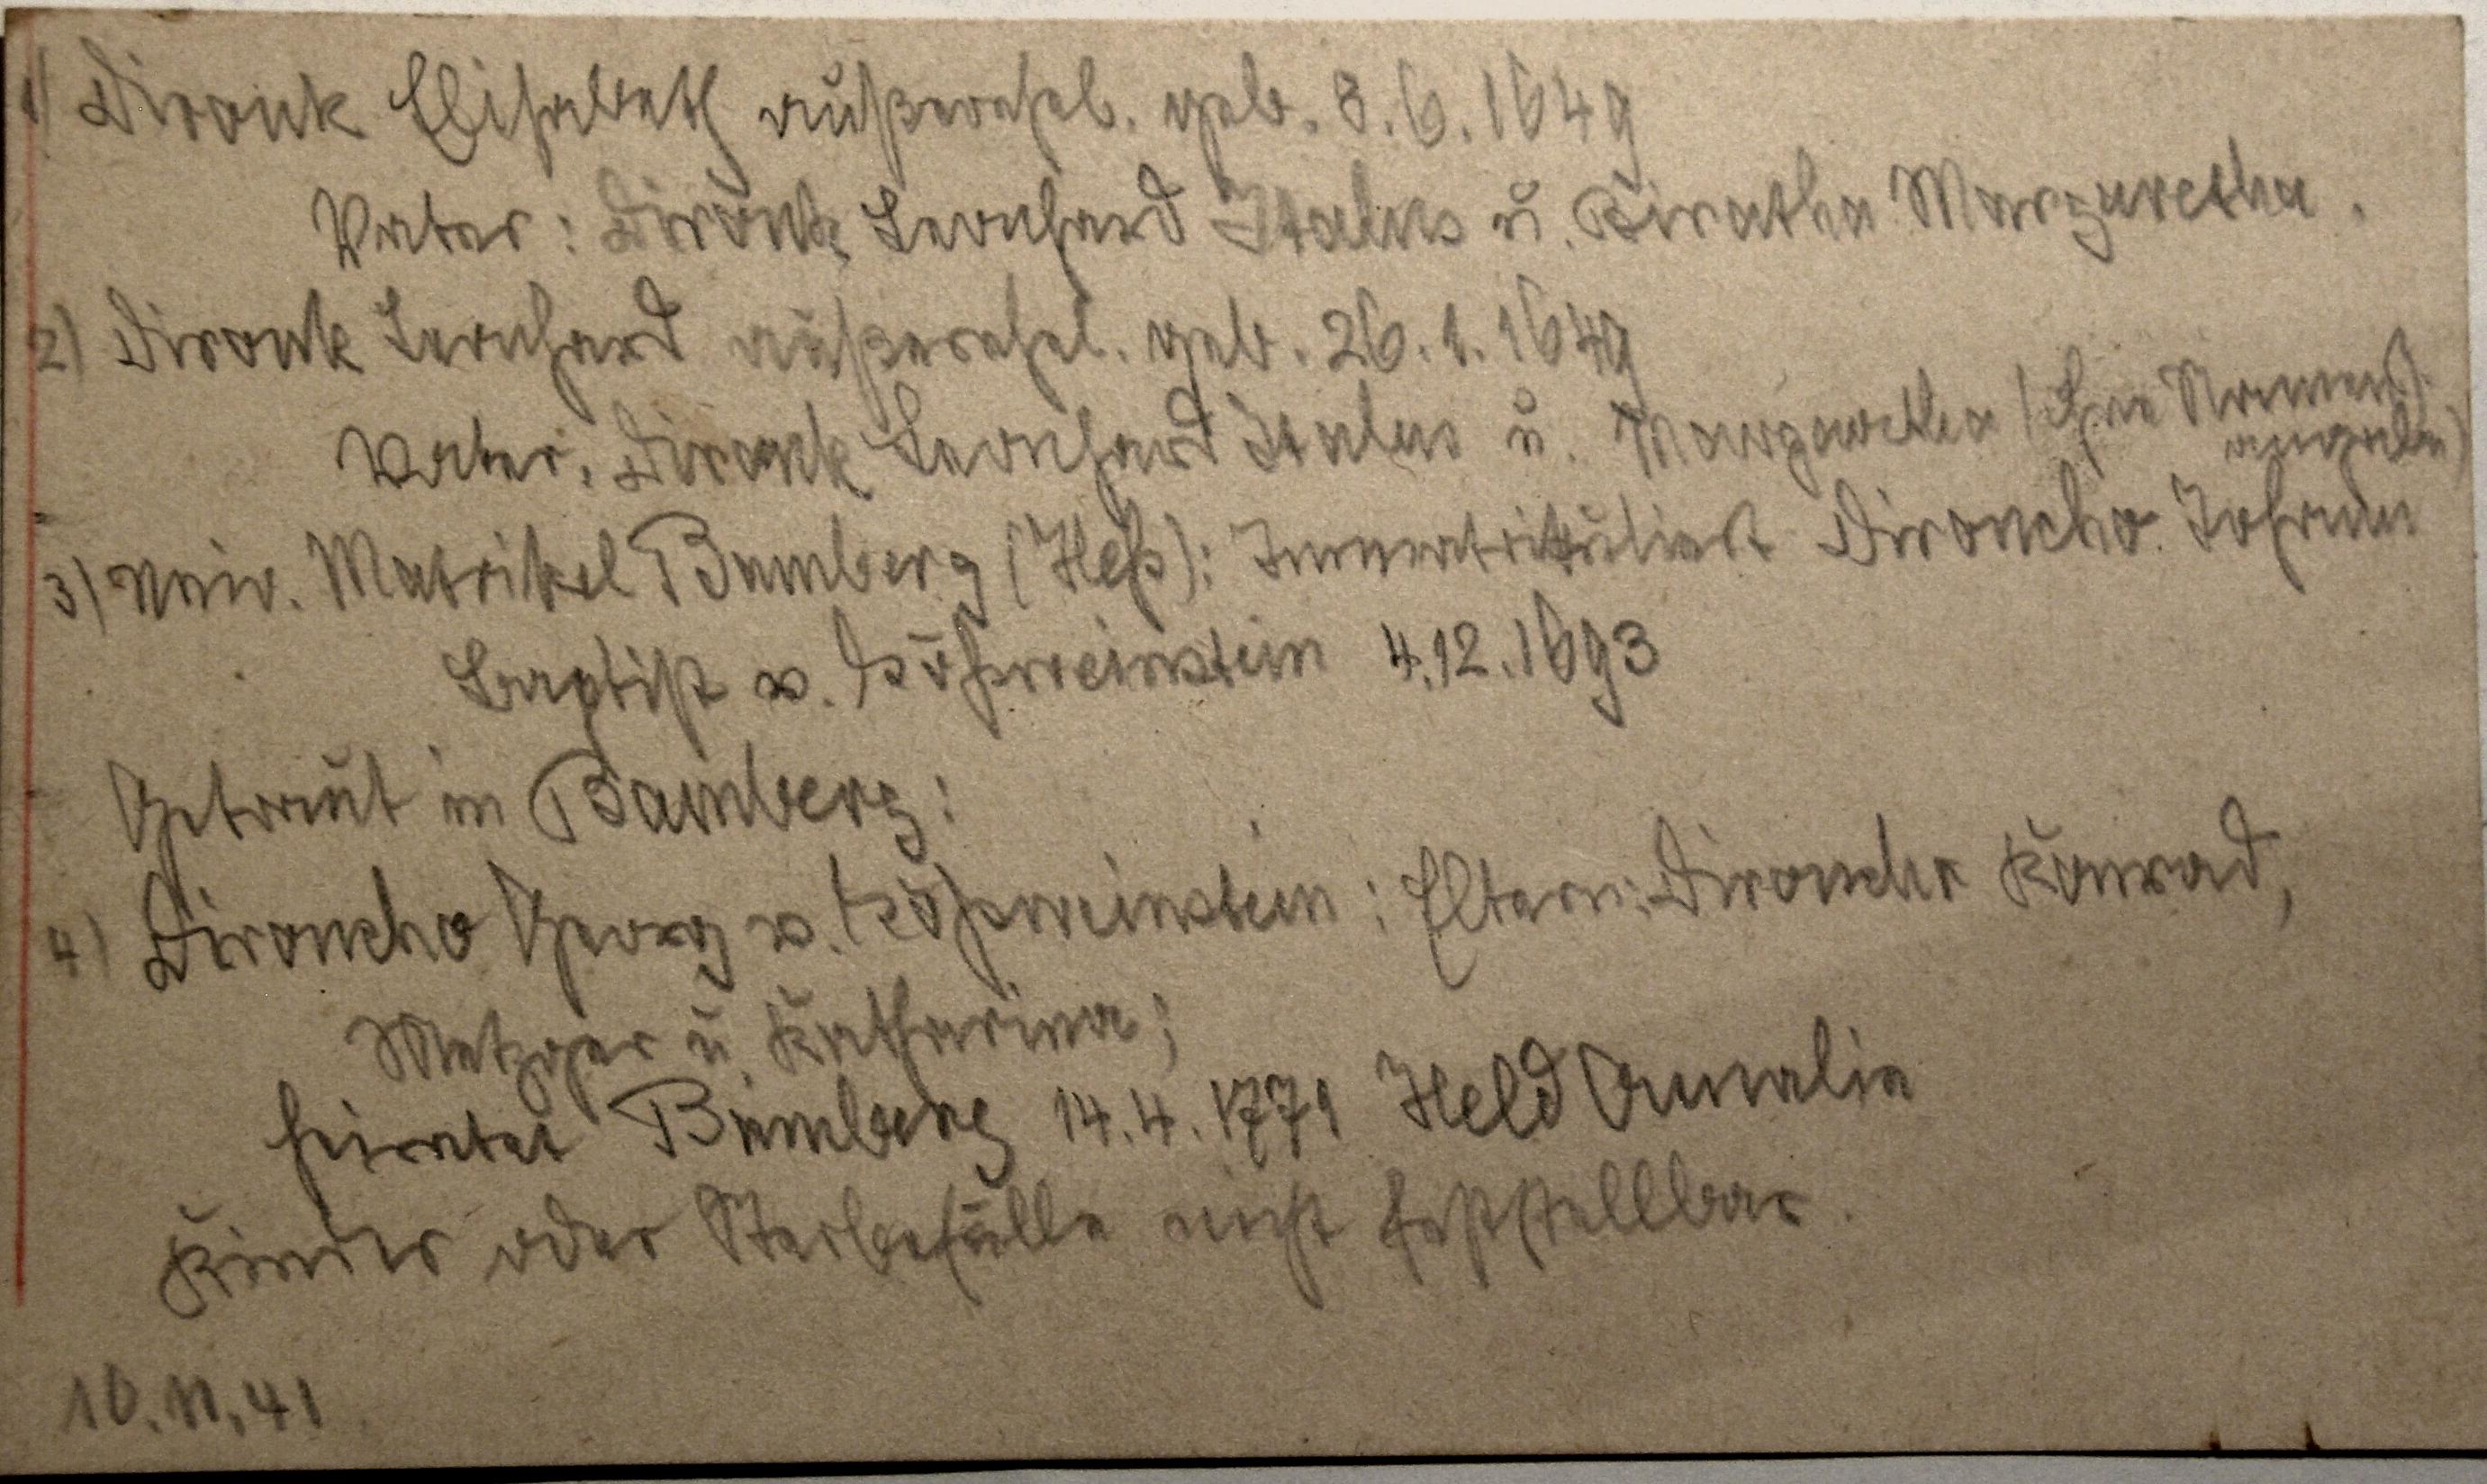 1) Dironk Elisabeth außerehel. geb. 8.6.1649
Vater: Dironk Leonhard Italus u. Margaretha.
2) Dironk Leonhard außerehel. geb. 26.1.1649
Vater: Dironk Leonhard Italus u. Margaretha
3) Univ. Matrikel Bamberg (Heß): Immatrikuliert Dironcho Johann
Baptist v. Gößweinstein 4.12.1693
Getraut in Bamberg:
4) Dironcho Georg v. Gößweinstein: Eltern: Dironcho Konrad,
Metzger u. Katharina;
heiratet Bamberg 14.4.1771 Held Amalia
Kinder oder Sterbefälle nicht feststellbar.
10.11.41